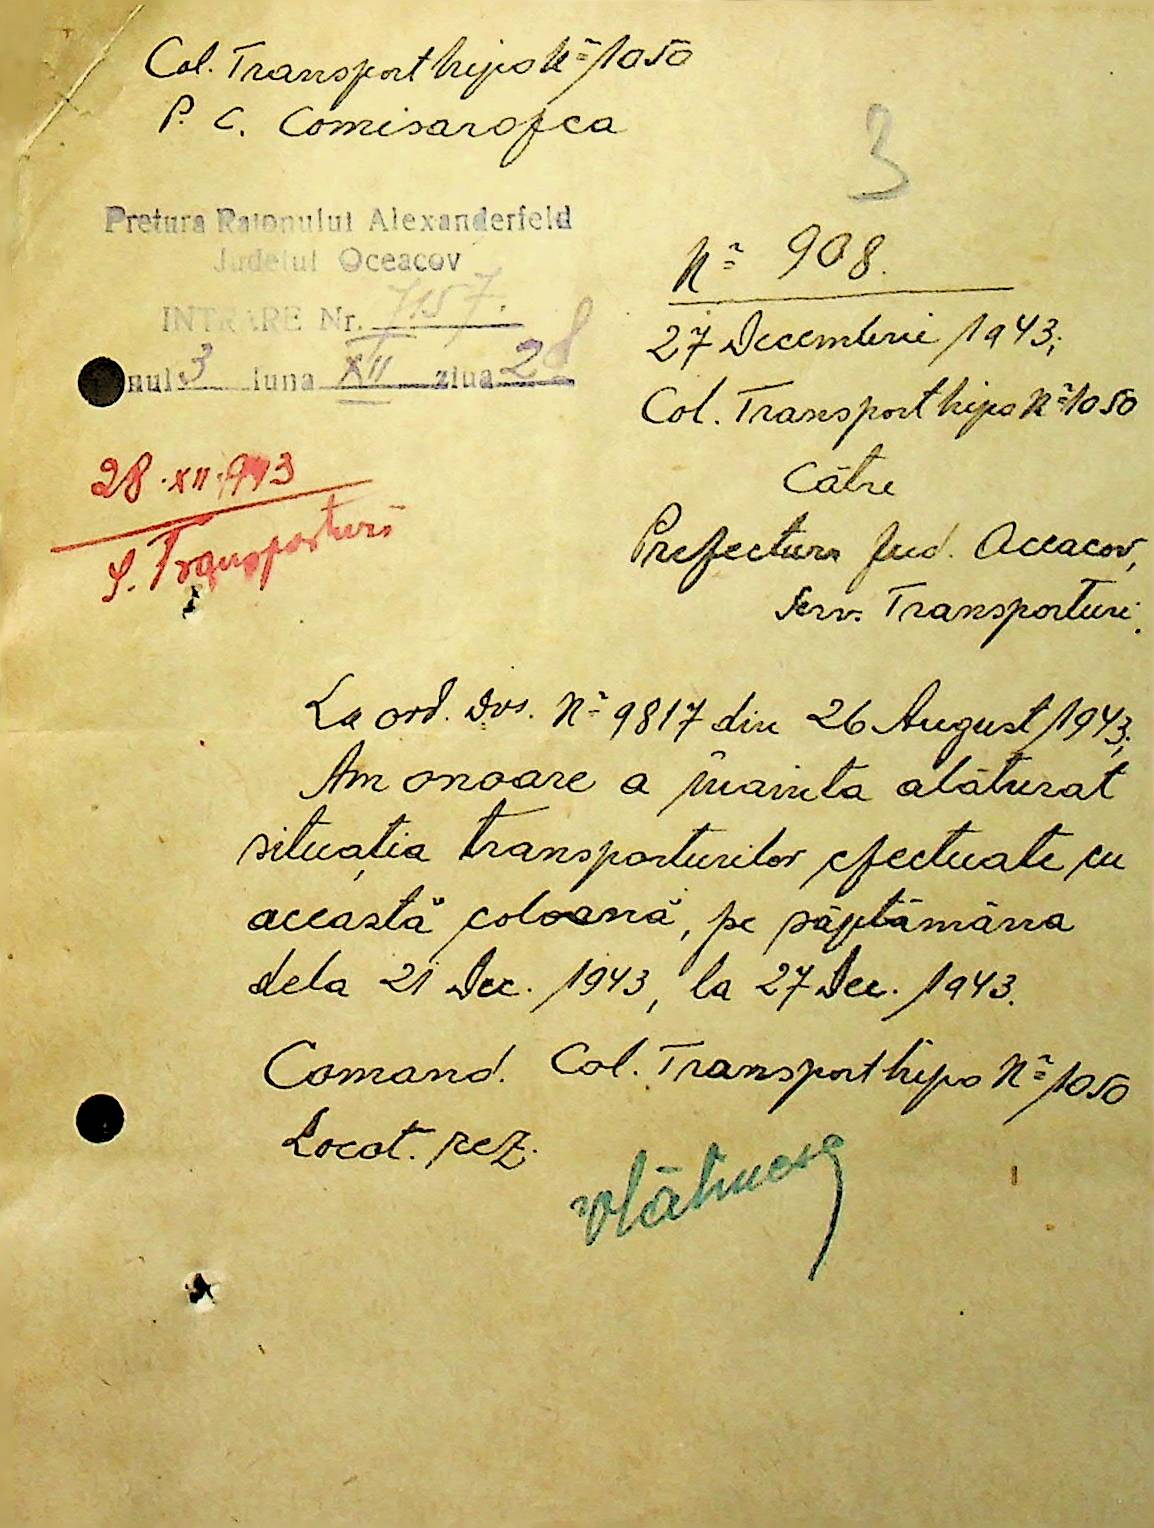 Col. Transport hipo Nº 1050
P. C. Comisarofca
3
Pretura Raionului Alexanderfeld
Judetul Oceacov
INTRARE Nr. 7157.
nul 3 luna XII ziua 28
Nº 908.
27 Decembrie 1943;
Col. Transport hipo Nº 1050
Către
Prefectura Jud. Oceacov,
Serv. Transporturi.
28.XII.943
S. Transporturi
La ord. Dvs. Nº 9817 din 26 August 1943;
Am onoare a înainta alăturat
situația transporturilor efectuate cu
această coloană, pe săptămâna
dela 21 Dec. 1943, la 27 Dec. 1943.
Comand. Col. Transport hipo Nº 1050
Locot. rez.